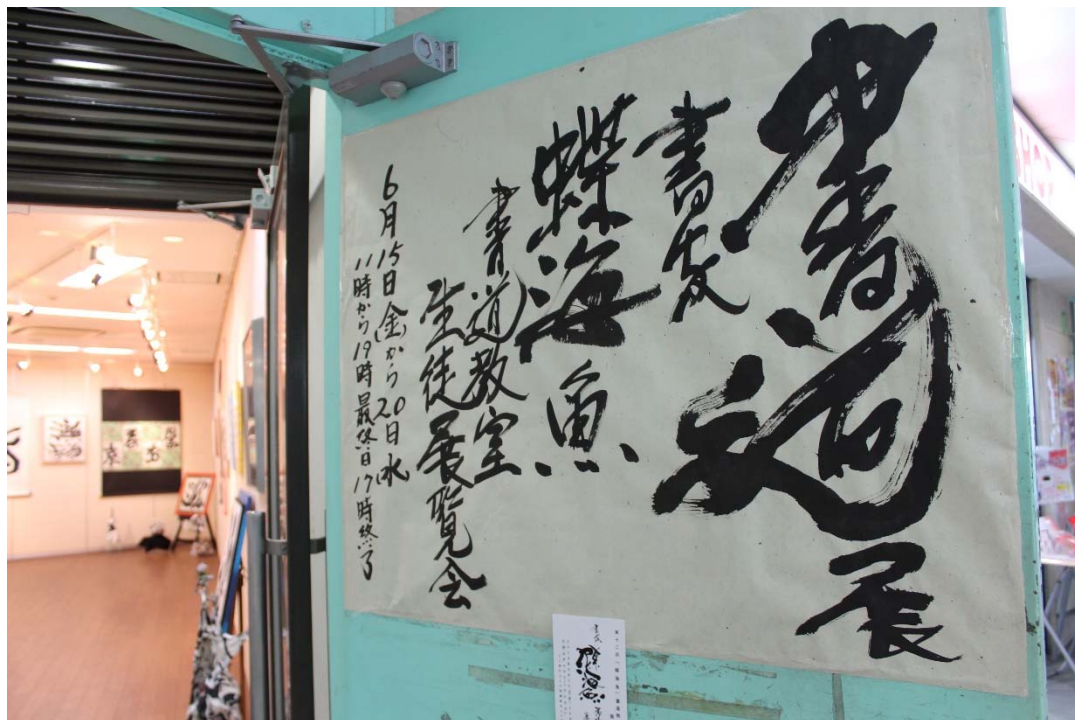 書
展
書友
蝶海魚
書道教室
生徒展覧会
6月15日(金)から20日(水)
11時から19時 最終日17時終了